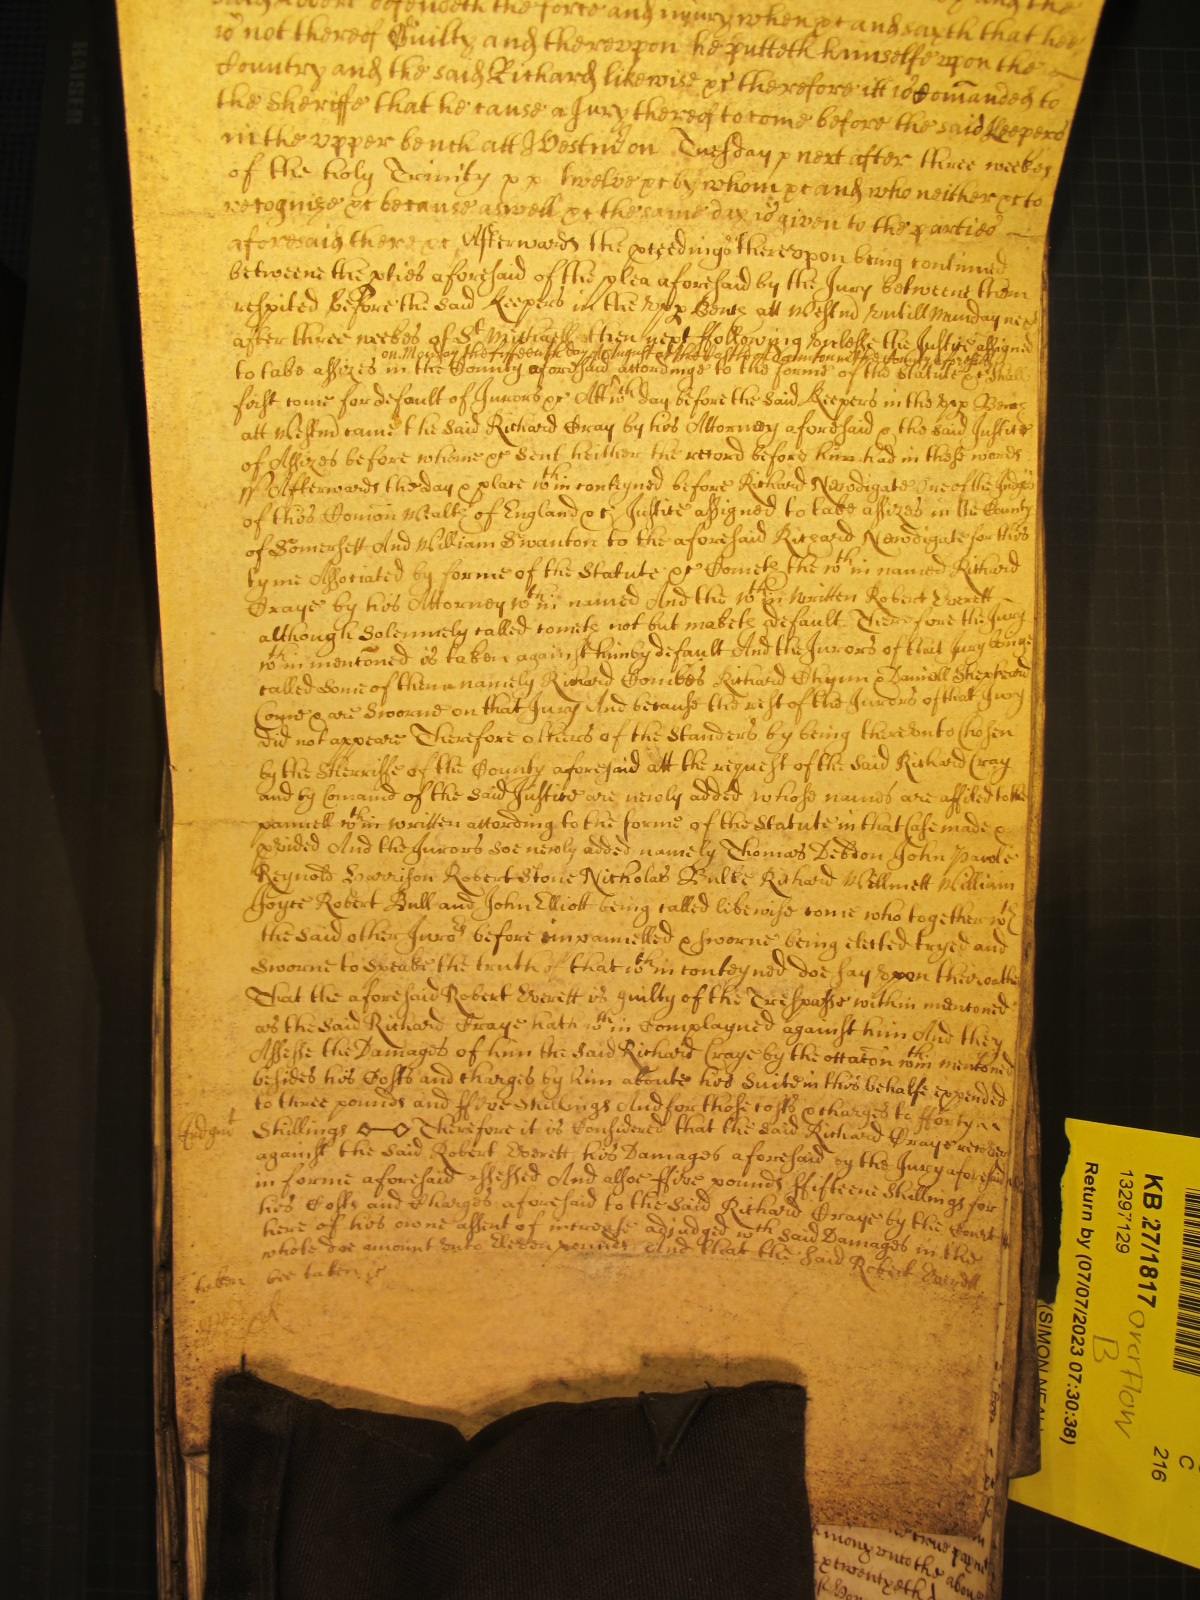 said Robert defendeth the force and injury when &c and sayth that hee
is not thereof Guilty and thereupon he putteth himselfe upon the
Country and the said Richard likewise &c therefore itt is Comanded to
the Sheriffe that he cause a Jury thereof to come before the said Keepers
in the upper bench att Westm on Tuesday next after three weekes
of the holy Trinity twelve &c by whom &c and who neither &c to
recognize &c because aswell &c the same day is given to the parties
aforesaid there &c Afterwards the pceedings thereupon being continued
betweene the pties aforesaid of the plea aforesaid by the Jury betweene them
respited before the said Keepers in the Upp Bench att Westm untill Munday next
after three weekes of St Michaell then next ffollowing unlesse the Justice assigned
on Monday the fifteenth day of August at the County aforesaid
to take assizes in the County aforesaid according to the forme of the Statute &c shall
first come for default of Jurors &c Att wch day before the said Keepers in the Upp Bench
att Westm came the said Richard Cray by his Attorney aforesaid & the said Justice
of Assizes before whome &c Sent heither the record before him had in these words
ss Afterwards the day & place wthin conteyned before Richard Newdigate One of the Judges
of this Comon Wealth of England &c Justice assigned to take assizes in the County
of Somersett And William Swanton to the aforesaid Richard Newdigate for this
tyme Associated by forme of the Statute &c Cometh the wthin named Richard
Craye by his Attorney wthin named And the wthin written Robert Everett
although Solemnely called cometh not but maketh default Therefore the Jury
wthin mencioned is taken against him by default And the Jurors of that Jury being
called Some of them namely Richard Combes Richard Chynn & Daniell Shepheard
Come & are Sworne on that Jury And because the rest of the Jurors of that Jury
did not appeare Therefore others of the Standers by being thereunto Chosen
by the Sherriffe of the County aforesaid att the request of the said Richard Cray
and by Comand of the said Justice are newly added whose names are affiled to the
pannell wthin written according to the forme of the Statute in that Case made &
pvided And the Jurors Soe newly added namely Thomas Debson John
Reynold Harrison Robert Stone Nicholas Bulke Richard Willmett William
Joyce Robert Bull and John Elliott being called likewise come who together wth
the said other Jurors before impannelled & sworne being elected tryed and
Sworne to Speake the truth of that wthin conteyned doe say upon their oathes
That the aforesaid Robert Everett is guilty of the Trespasse within mentioned
as the said Richard Craye hath wthin Complayned against him And they
Assesse the Damages of him the said Richard Craye by the occacon wthin mentioned
besides his Costs and charges by him aboute his Suite in this behalfe expended
to three pounds and ffive Shillings And for those costs & charges to fforty
Shillings Therefore it is Considered that the said Richard Craye recover
Judgmt
against the said Robert Everett his Damages aforesaid by the Jury aforesaid
in forme aforesaid assessed And alsoe ffive pounds ffifteene Shillings for
his Costs and Charges aforesaid to the said Richard Craye by the Court
here of his owne assent of increase adjudged wch said Damages in the
whole doe amount unto Eleven pounds And that the said Robert Everett
taken bee taken &c
KB 27/1817
13297129
Return by (07/07/2023 07:30:38)
(SIMON NEAL)
overflow
B
C
216
KAISER